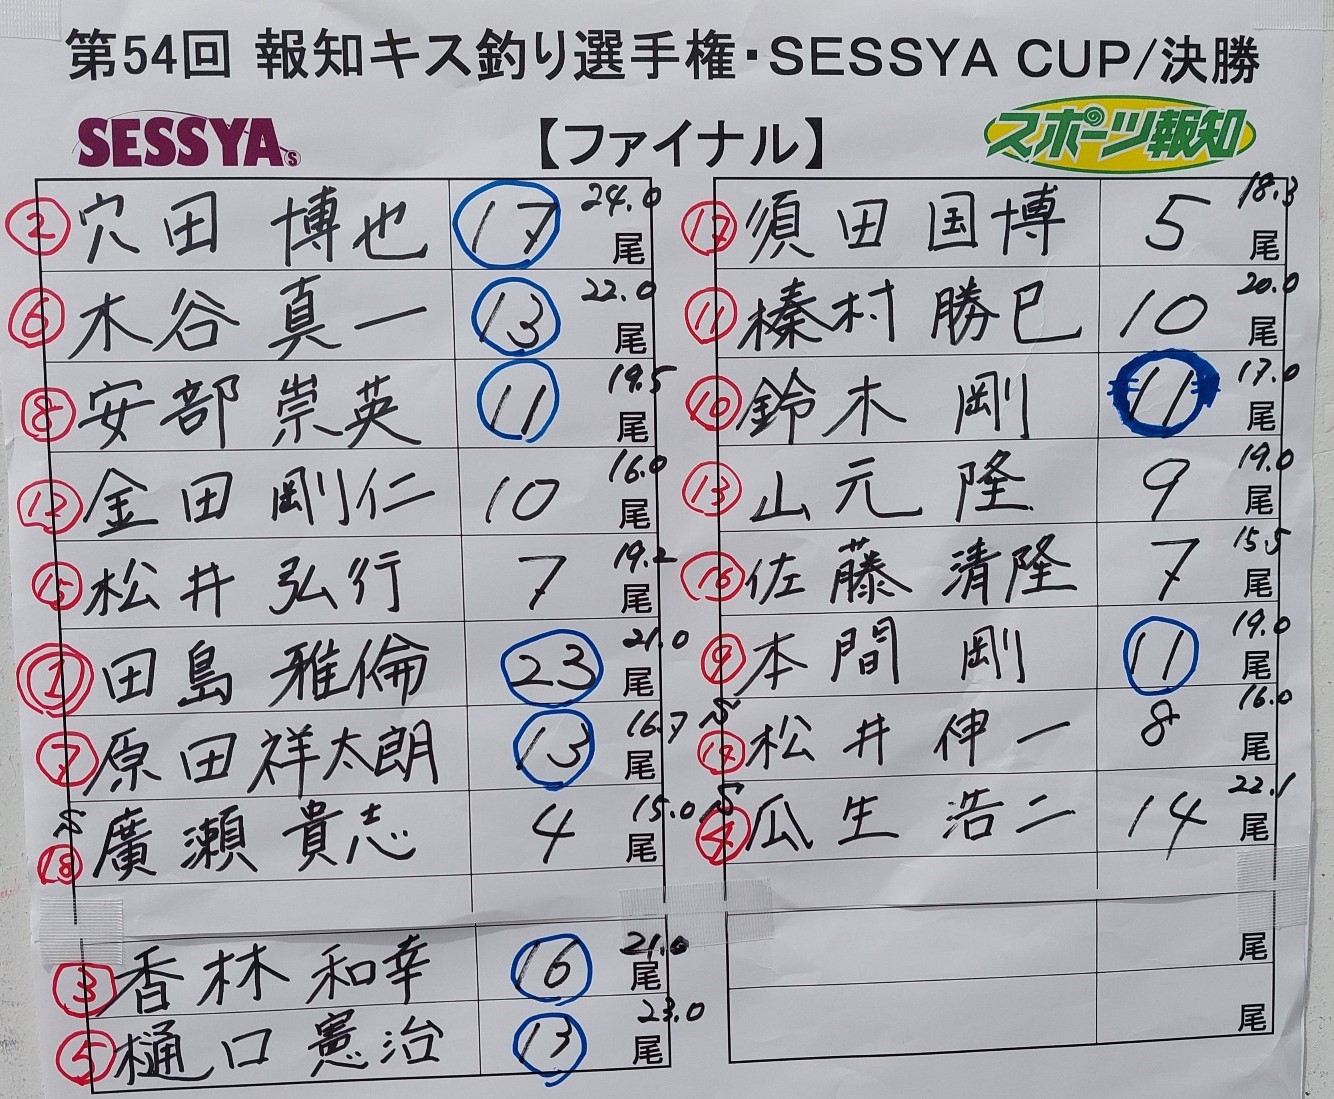 第54回 報知キス釣り選手権・SESSYA CUP/決勝
SESSYA
【ファイナル】
スポーツ報知
② 穴田 博也 17 24.0 尾
⑥ 木谷 真一 13 22.0 尾
⑧ 安部 崇英 11 19.5 尾
⑫ 金田 剛仁 10 16.0 尾
⑮ 松井 弘行 7 19.2 尾
① 田島 雅倫 23 21.0 尾
⑦ 原田 祥太朗 13 16.7 尾
⑱ 廣瀬 貴志 4 15.0 尾
③ 香林 和幸 16 21.0 尾
⑤ 樋口 憲治 13 23.0 尾
⑰ 須田 国博 5 18.3 尾
⑪ 榛村 勝巳 10 20.0 尾
⑩ 鈴木 剛 11 17.0 尾
⑬ 山元 隆 9 19.0 尾
⑯ 佐藤 清隆 7 15.5 尾
⑨ 本間 剛 11 19.0 尾
⑭ 松井 伸一 8 16.0 尾
④ 瓜生 浩二 14 22.1 尾
尾
尾